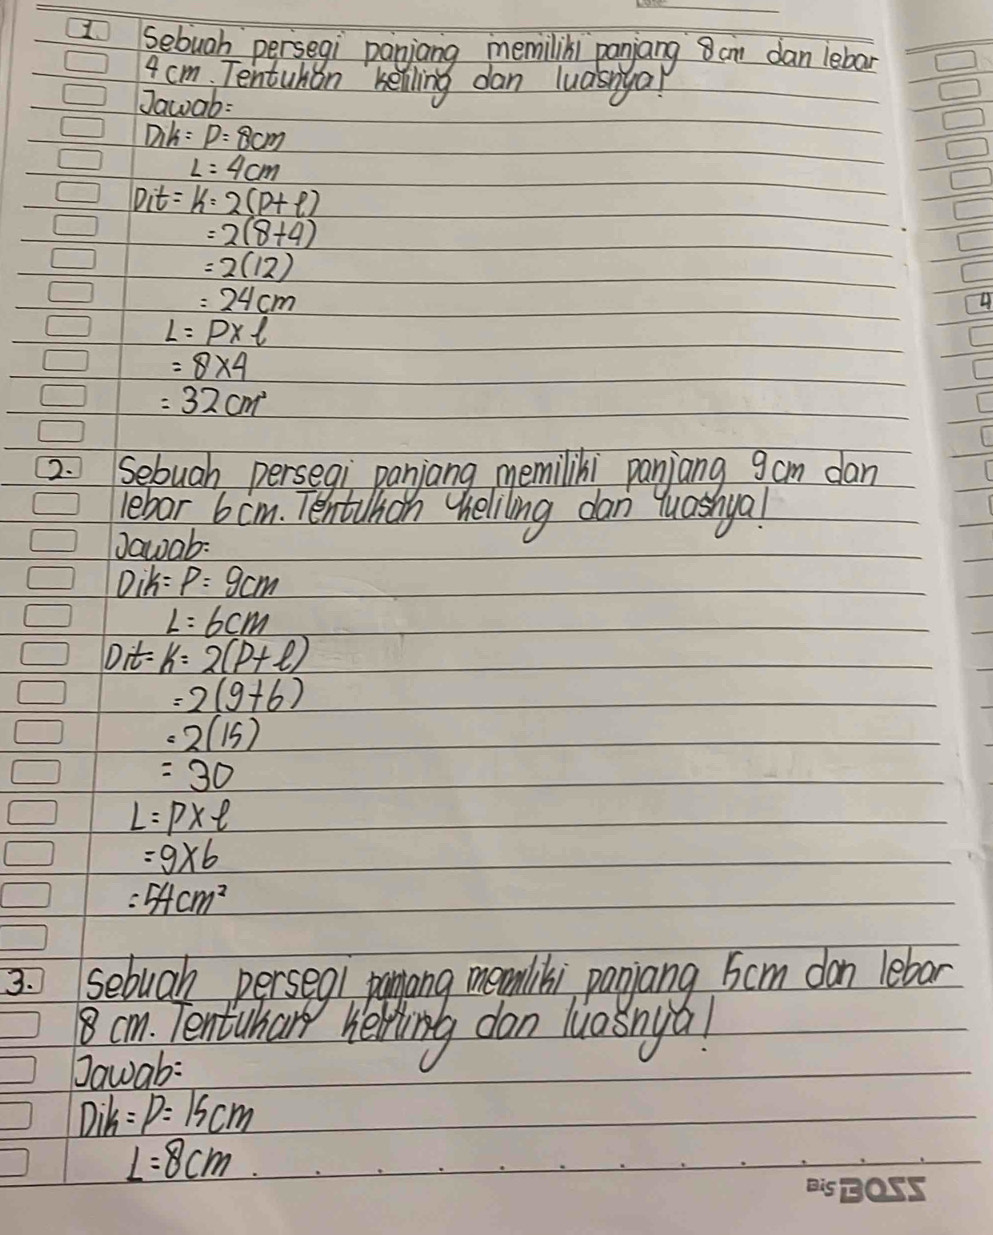 1. Sebuah persegi panjang memiliki panjang 8 cm dan lebar
4 cm. Tentukan keliling dan luasnya!
Jawab:
Dik = P = 8cm
L = 4cm
Dit = K = 2(P+l)
= 2(8+4)
= 2(12)
= 24 cm
L = P x l
= 8 x 4
= 32 cm²
4
2. Sebuah persegi panjang memiliki panjang 9cm dan
lebar 6 cm. Tentukan keliling dan luasnya!
Jawab:
Dik = P = 9cm
L = 6cm
Dit = K = 2(P+l)
= 2(9+6)
= 2(15)
= 30
L = P x l
= 9 x 6
= 54 cm²
3. Sebuah persegi panjang memiliki panjang 15cm dan lebar
8 cm. Tentukan keliling dan luasnya!
Jawab:
Dik = P = 15cm
L = 8cm
BiS BOSS